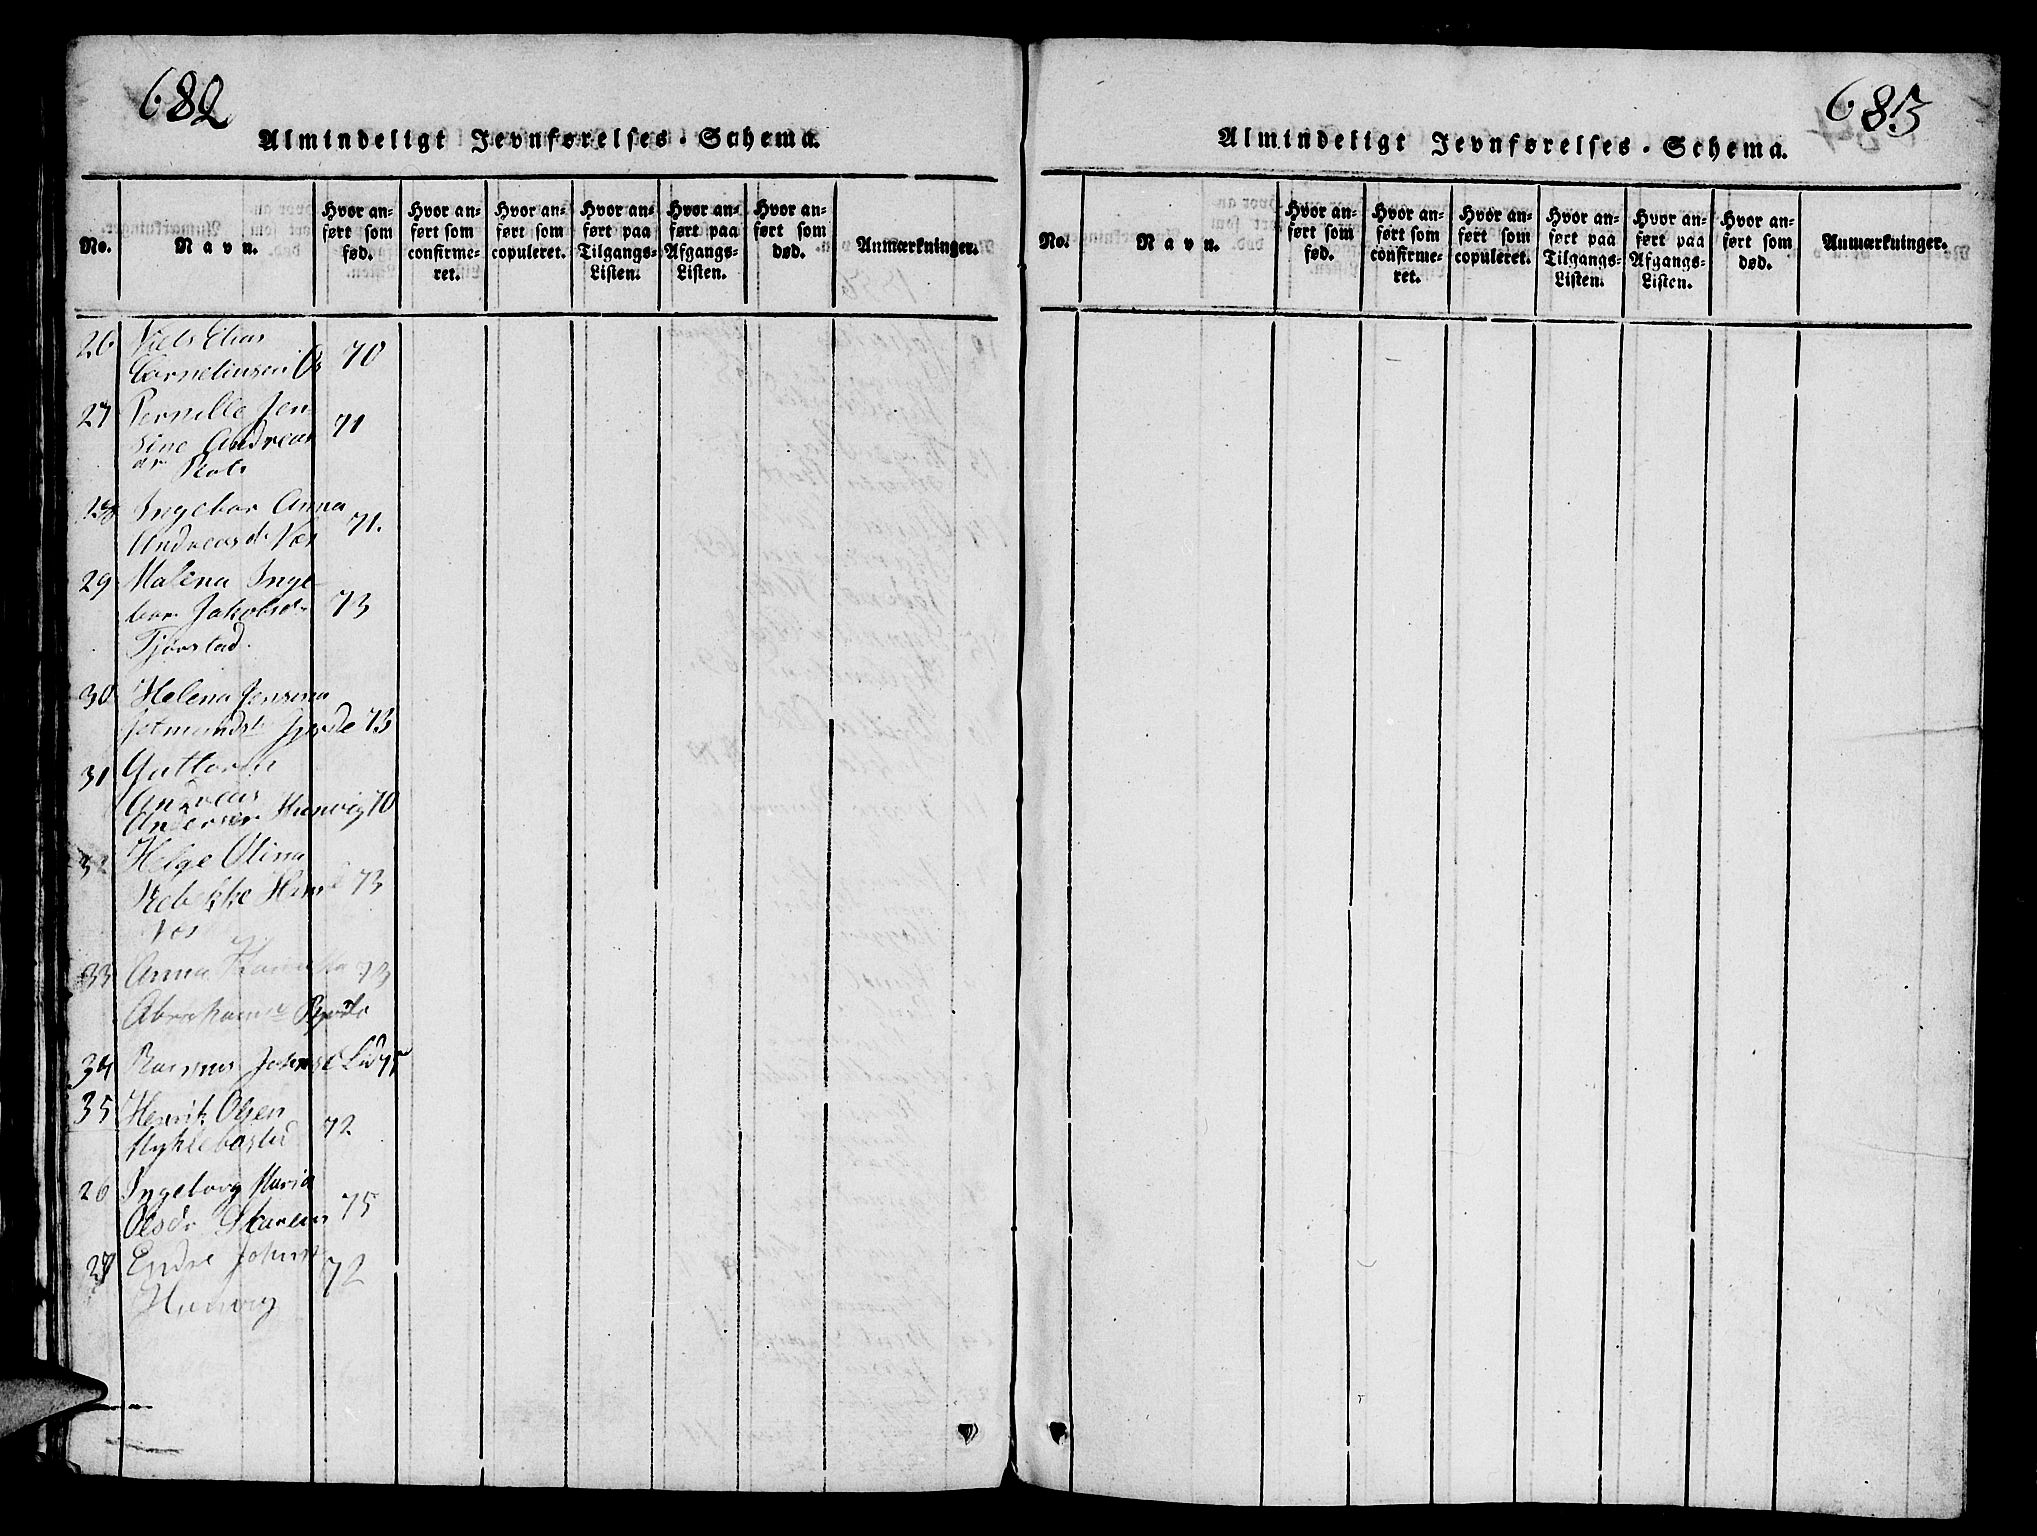 682
Almindeligt Jevnførelses-Schema.
No.
Navn.
Hvor anført som fød.
Hvor anført som confirmeret.
Hvor anført som copuleret.
Hvor anført paa Tilgangs-Listen.
Hvor anført paa Afgangs-Listen.
Hvor anført som død.
Anmærkninger.
26 Niels Elias
Cornelinsen 70
27 Pernille Jen-
sine Andreas 71
dr
28 Ingebor Anna
Andreasd 71.
29 Malena Inge-
bor Jakobsdr 73
Tjørstad.
30 Helena Jensina
Gjerde 73
31 Guttorm
Andreas
Andersen Hunvig 70
32 Helge Olina
Rebekke 73
33 Anna 73
Abrahams
34 Rasmus Lid
35 Henrik Olsen
Myklebostad 72
26 Ingeborg Maria
Olsdr 75
27 Endre Johns 72
Hunvig
683
Almindeligt Jevnførelses-Schema.
No.
Navn.
Hvor anført som fød.
Hvor anført som confirmeret.
Hvor anført som copuleret.
Hvor anført paa Tilgangs-Listen.
Hvor anført paa Afgangs-Listen.
Hvor anført som død.
Anmærkninger.